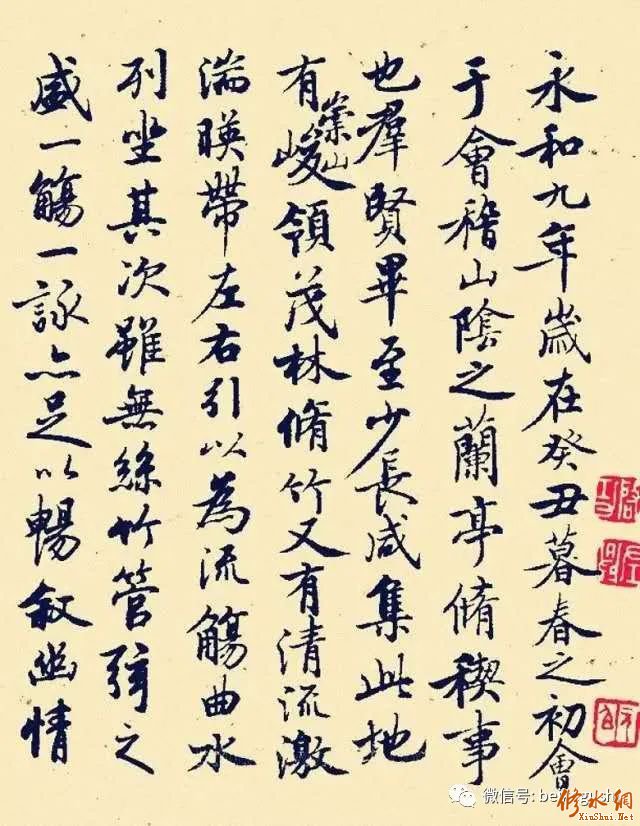 永和九年歲在癸丑暮春之初會
于會稽山陰之蘭亭脩稧事
也羣賢畢至少長咸集此地
有崇山峻領茂林脩竹又有清流激
湍暎帶左右引以為流觴曲水
列坐其次雖無絲竹管弦之
盛一觴一詠亦足以暢敘幽情
微信号:
修水網
XiuShui.Net